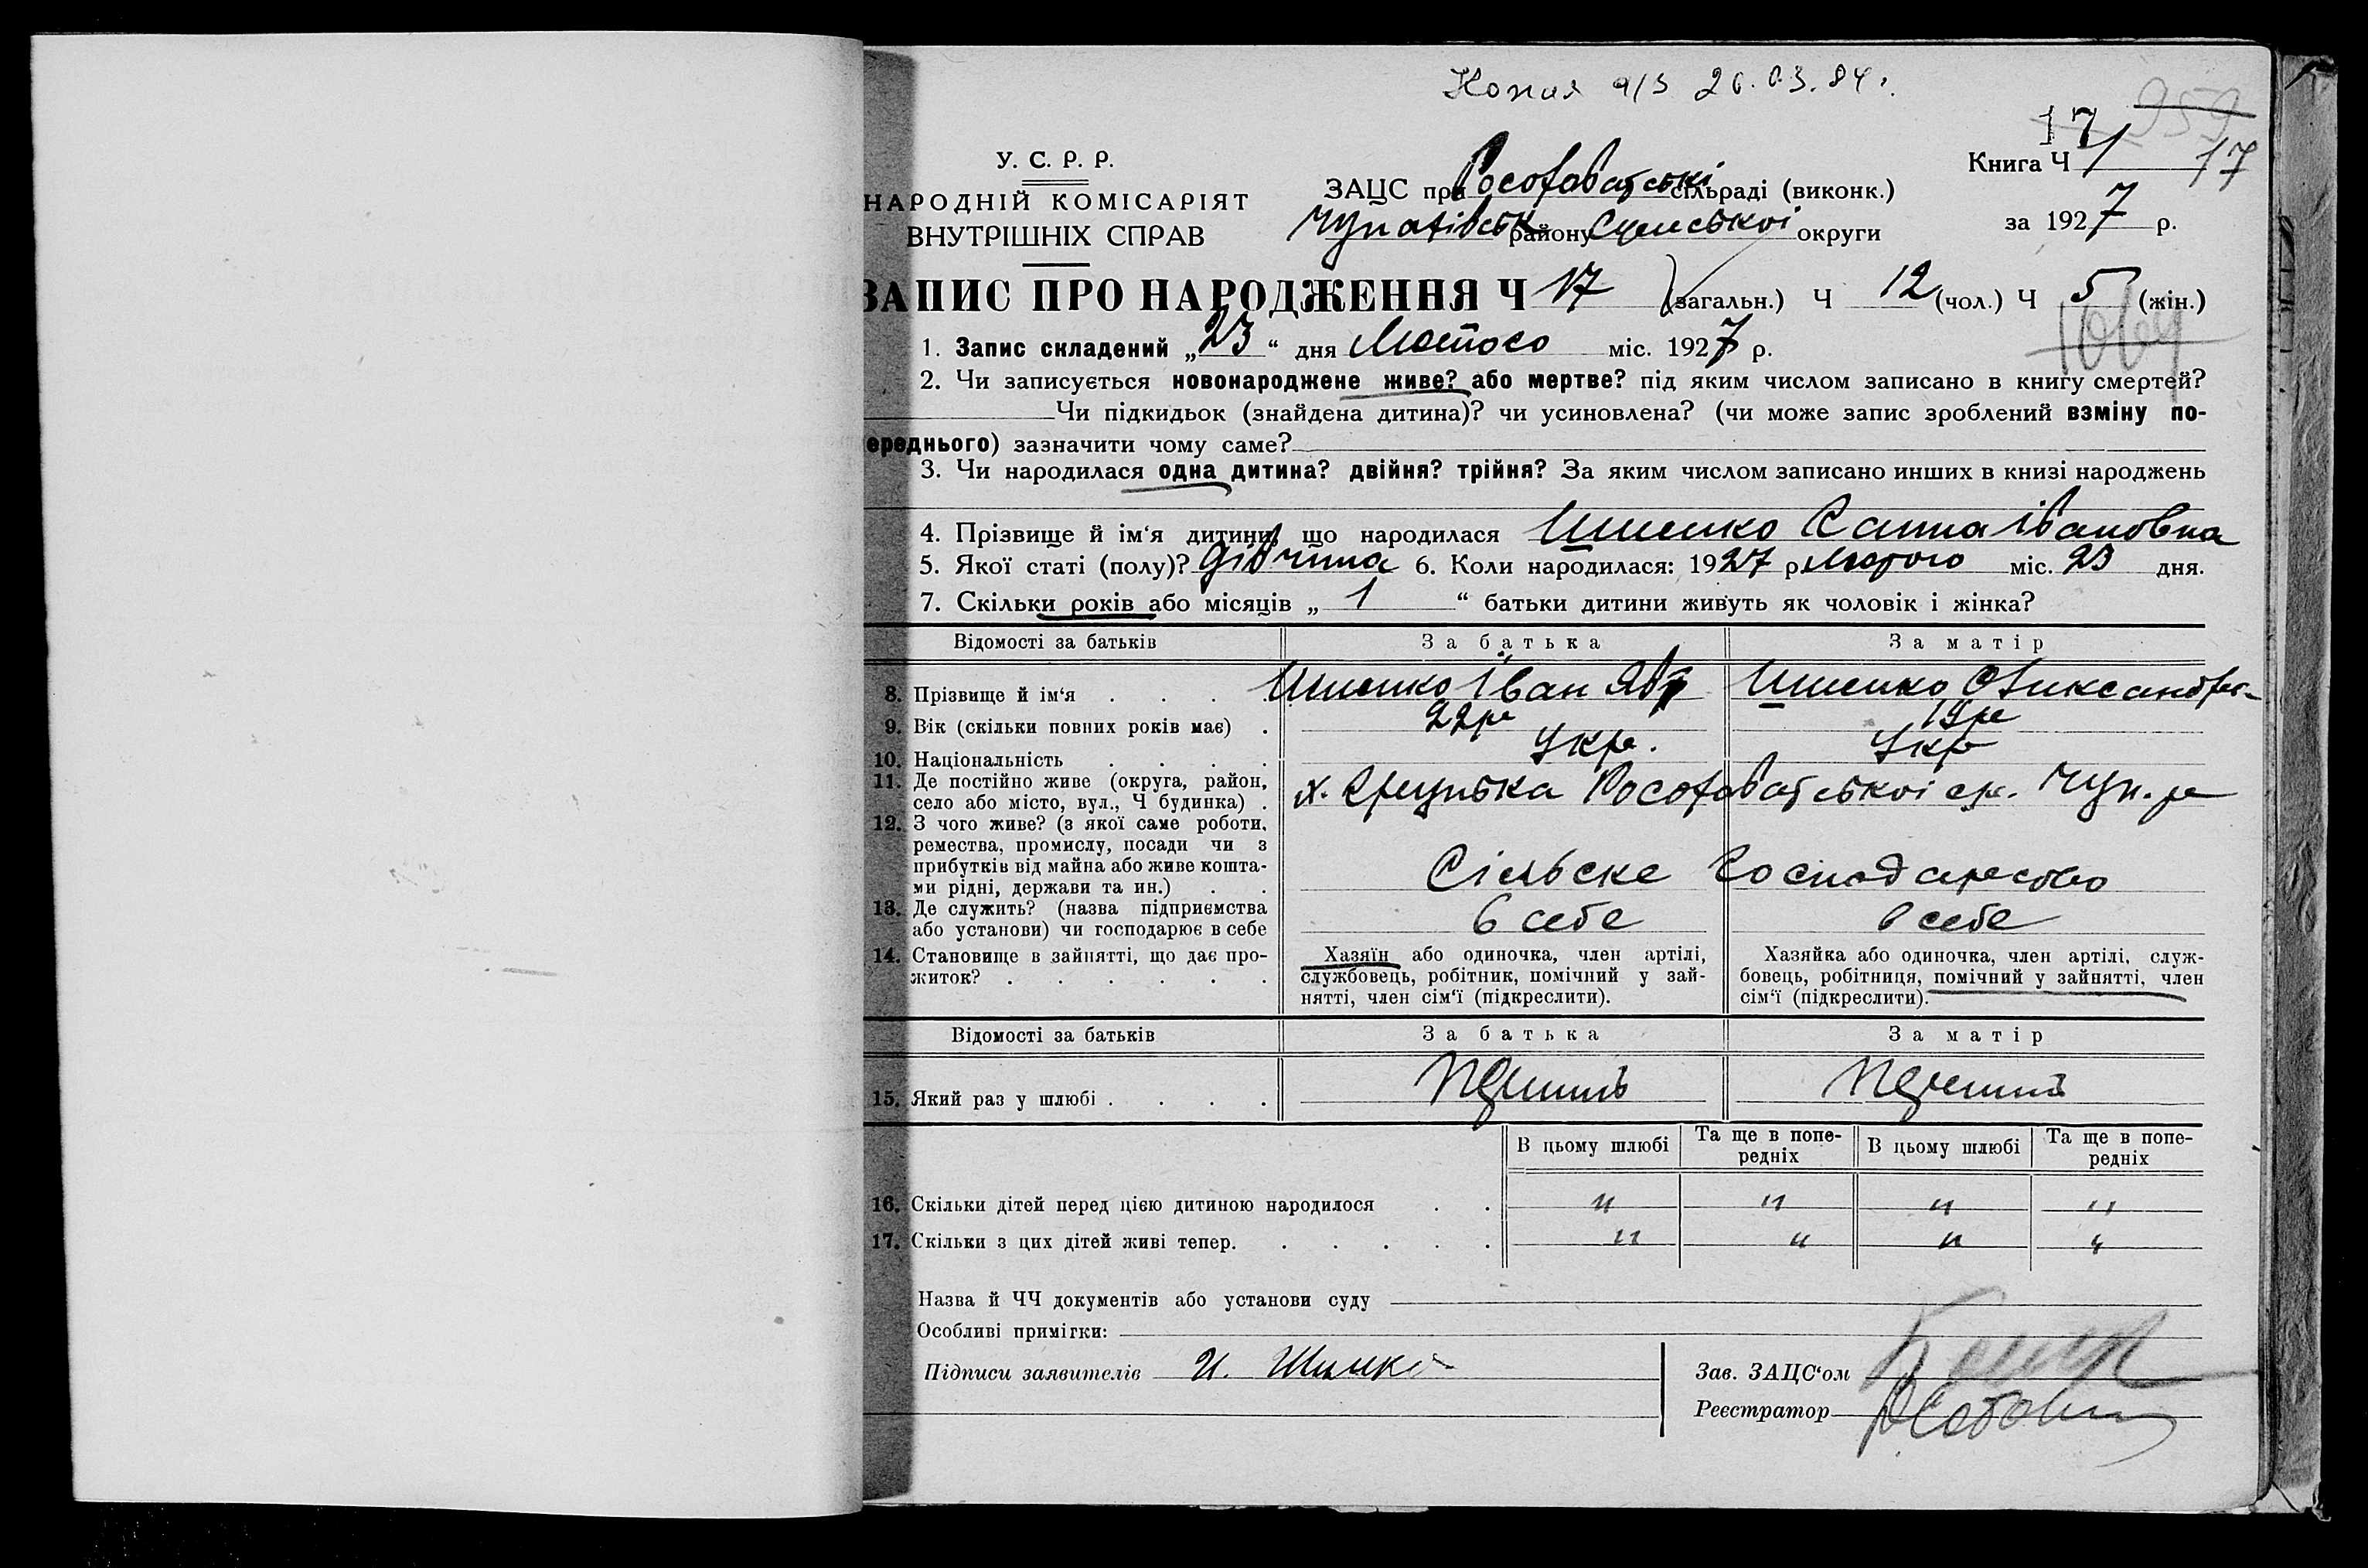 Копия а/з 26.03.84г.
959
17
У. С. Р. Р.
НАРОДНІЙ КОМІСАРІЯТ
ВНУТРІШНІХ СПРАВ
Книга Ч 1 17
ЗАЦС при Росоховатські сільраді (виконк.)
Чупахівськ району Сумської округи
за 1927 р.
ЗАПИС ПРО НАРОДЖЕННЯ Ч 17 (загальн.) Ч 12 (чол.) Ч 5 (жін.)
1. Запис складений „23“ дня Лютого міс. 1927 р.
2. Чи записується новонароджене живе? або мертве? під яким числом записано в книгу смертей?
Чи підкидьок (знайдена дитина)? чи усиновлена? (чи може запис зроблений взміну по-
ереднього) зазначити чому саме?
3. Чи народилася одна дитина? двійня? трійня? За яким числом записано инших в книзі народжень
4. Прізвище й ім‘я дитини, що народилася Ганна Івановна
5. Якої статі (полу)? дівчина 6. Коли народилася: 1927 р. Лютого міс. 23 дня.
7. Скільки років або місяців „ 1 “ батьки дитини живуть як чоловік і жінка?
Відомості за батьків За батька За матір
8. Прізвище й ім‘я . . . . Іван
9. Вік (скільки повних років має) . 22р 19р
10. Національність . . . . Укр. Укр
11. Де постійно живе (округа, район,
село або місто, вул., Ч будинка) . х. Росоховатської ср. Чуп. р
12. З чого живе? (з якої саме роботи,
ремества, промислу, посади чи з
прибутків від майна або живе кошта-
ми рідні, держави та ин.) . . Сільське Господарство
13. Де служить? (назва підприємства
або установи) чи господарює в себе в себе в себе
14. Становище в зайнятті, що дає про-
житок? . . . . . .
Хазяїн або одиночка, член артілі,
службовець, робітник, помічний у зай-
нятті, член сім‘ї (підкреслити).
Хазяйка або одиночка, член артілі, служ-
бовець, робітниця, помічний у зайнятті, член
сім‘ї (підкреслити).
Відомості за батьків За батька За матір
15. Який раз у шлюбі . . . .
В цьому шлюбі Та ще в попе-
редніх В цьому шлюбі Та ще в попе-
редніх
16. Скільки дітей перед цією дитиною народилося . . " " " "
17. Скільки з цих дітей живі тепер. . . . . . " " " "
Назва й ЧЧ документів або установи суду
Особливі примітки:
Підписи заявителів И.
Зав. ЗАЦС‘ом
Реєстратор